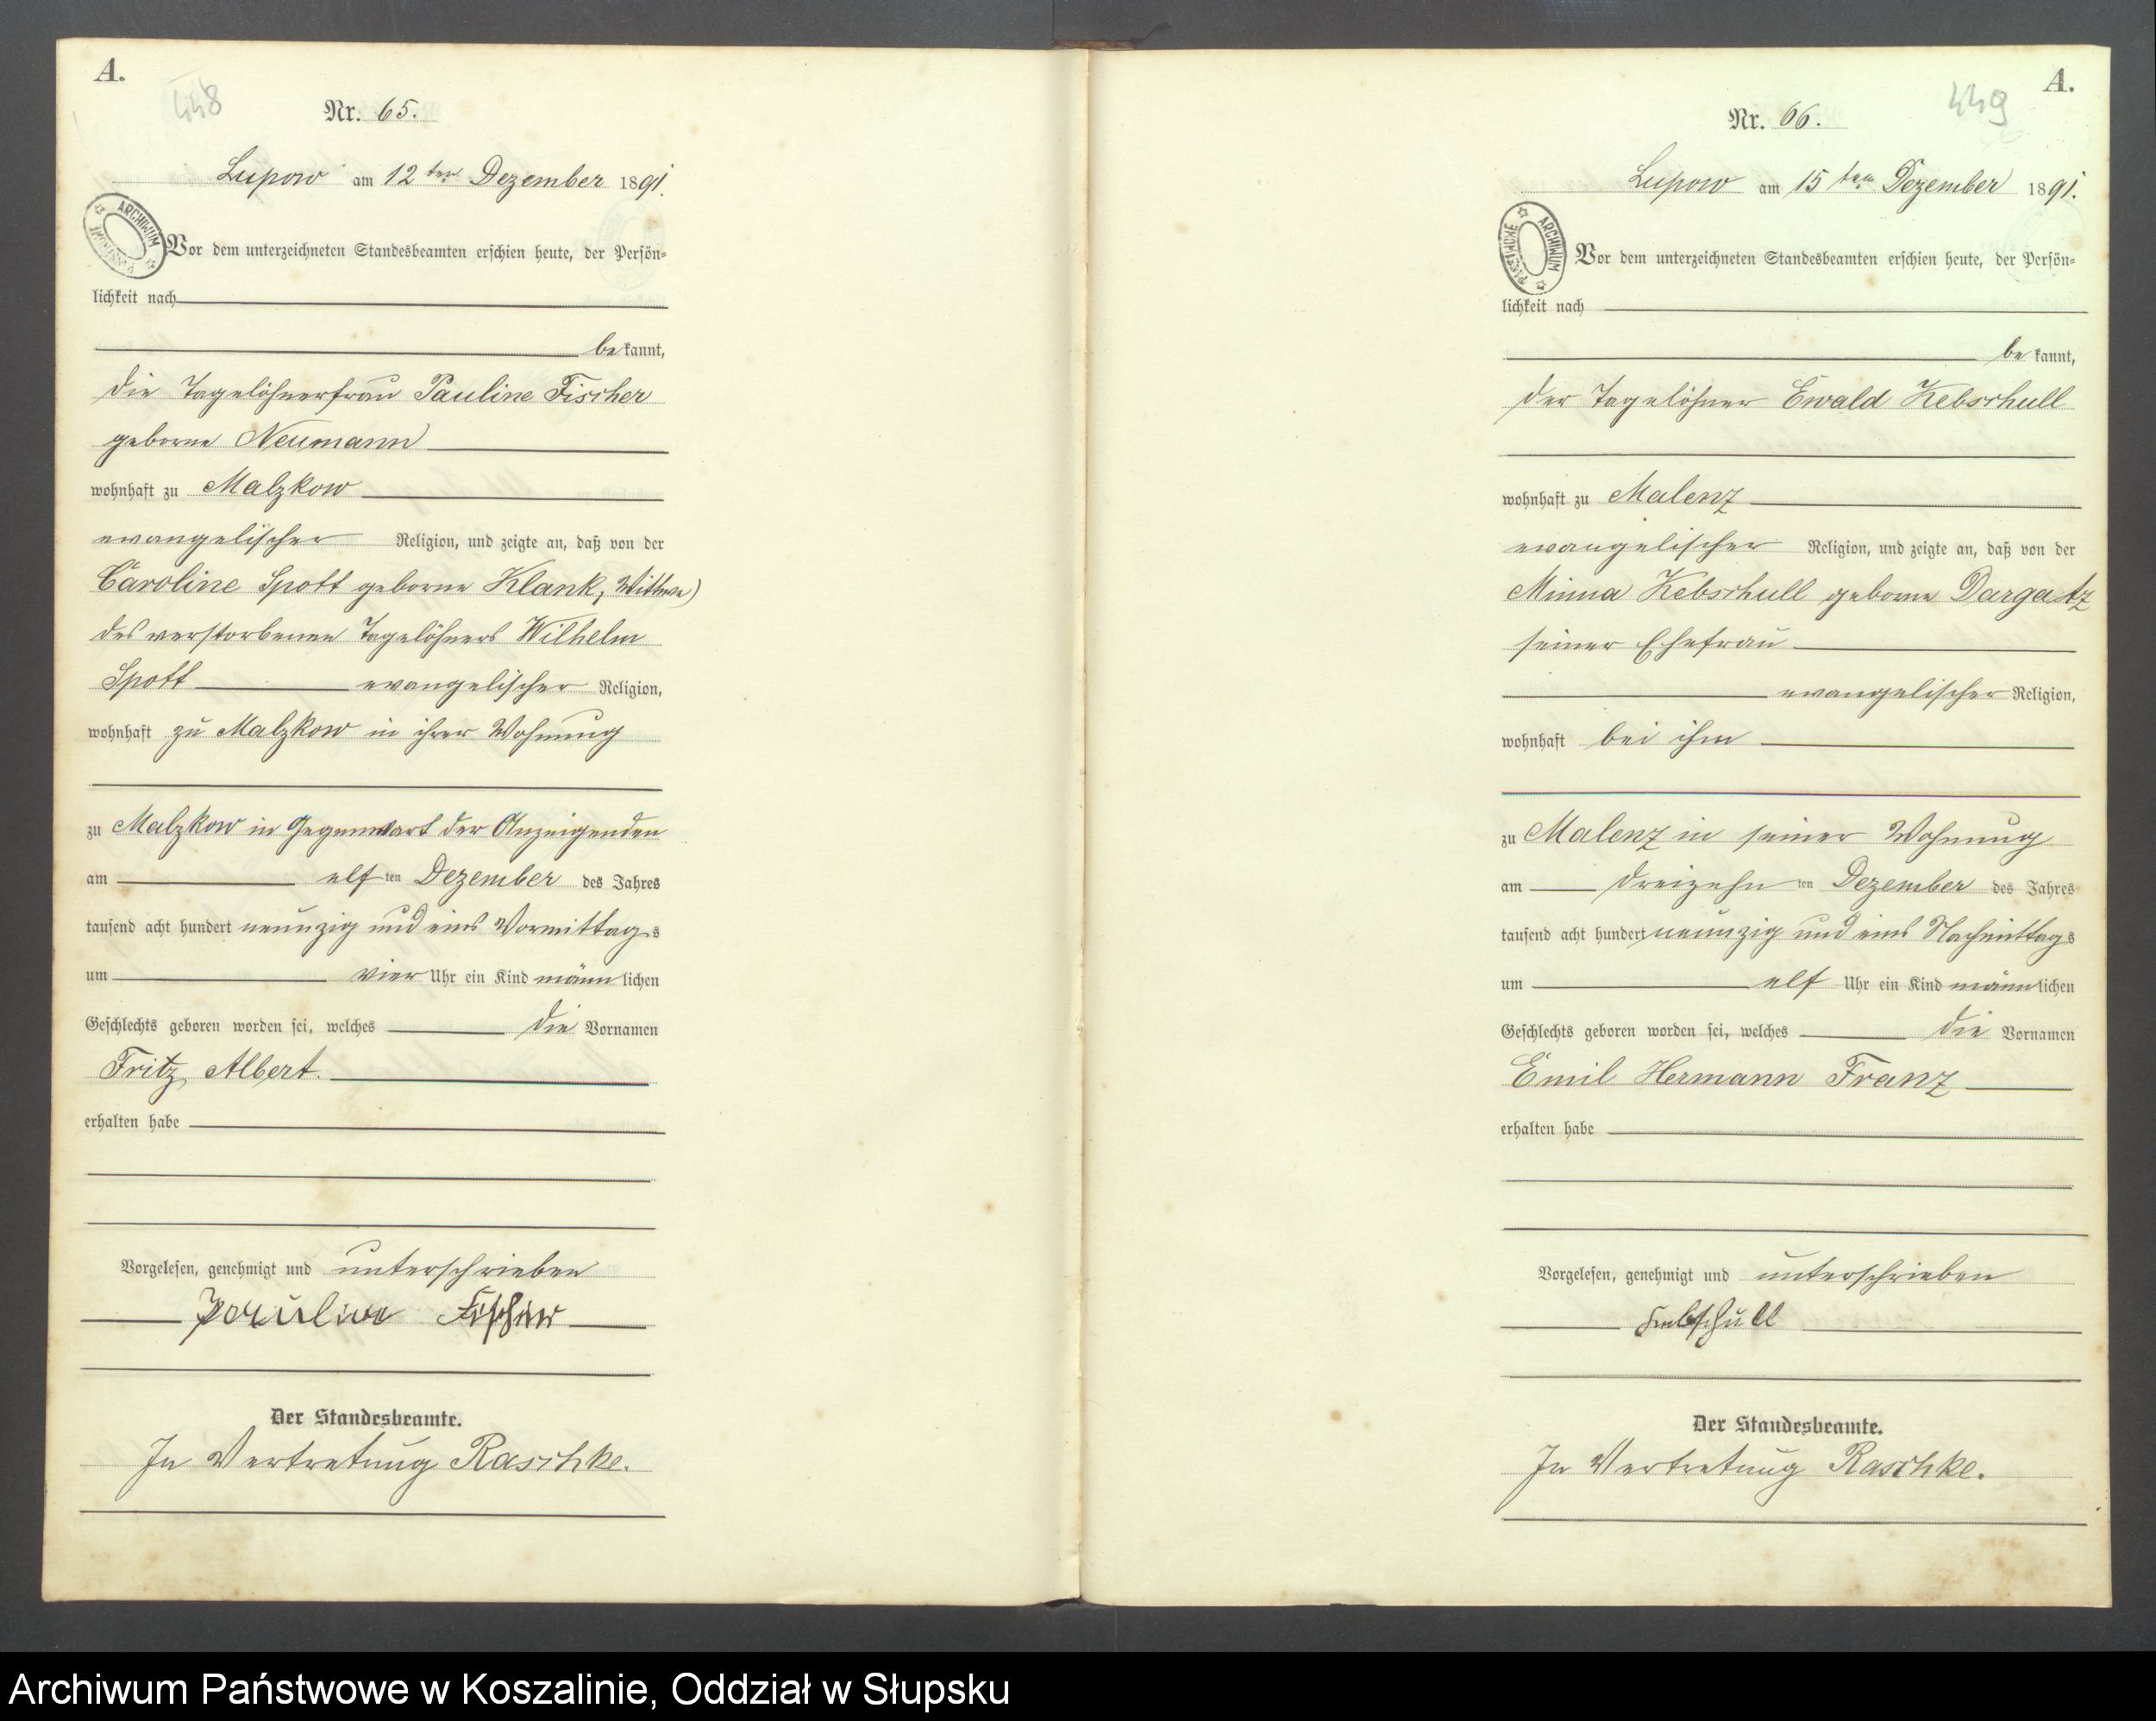 A.
448
Nr. 65.
Lupow am 12ten Dezember 1891.
ARCHIWUM PAŃSTWOWE
Vor dem unterzeichneten Standesbeamten erschien heute, der Persön-
lichkeit nach
bekannt,
die Tagelöhnerfrau Pauline Fischer
geborne Neumann
wohnhaft zu Malzkow
evangelischer Religion, und zeigte an, daß von der
Caroline Spott geborne Klank, Wittwe
des verstorbenen Tagelöhners Wilhelm
Spott evangelischer Religion,
wohnhaft zu Malzkow in ihrer Wohnung
zu Malzkow in Gegenwart der Anzeigenden
am elften Dezember des Jahres
tausend acht hundert neunzig und eins Vormittags
um vier Uhr ein Kind männlichen
Geschlechts geboren worden sei, welches die Vornamen
Fritz Albert.
erhalten habe
Vorgelesen, genehmigt und unterschrieben
Pauline Fischer
Der Standesbeamte.
In Vertretung Raschke.
A.
449
Nr. 66.
Lupow am 15ten Dezember 1891.
ARCHIWUM PAŃSTWOWE
Vor dem unterzeichneten Standesbeamten erschien heute, der Persön-
lichkeit nach
bekannt,
der Tagelöhner Ewald Kebschull
wohnhaft zu Malenz
evangelischer Religion, und zeigte an, daß von der
Minna Kebschull geborne Dargatz
seiner Ehefrau
evangelischer Religion,
wohnhaft bei ihm
zu Malenz in seiner Wohnung
am dreizehnten Dezember des Jahres
tausend acht hundert neunzig und eins Nachmittags
um elf Uhr ein Kind männlichen
Geschlechts geboren worden sei, welches die Vornamen
Emil Hermann Franz
erhalten habe
Vorgelesen, genehmigt und unterschrieben
Kebschull
Der Standesbeamte.
In Vertretung Raschke.
Archiwum Państwowe w Koszalinie, Oddział w Słupsku